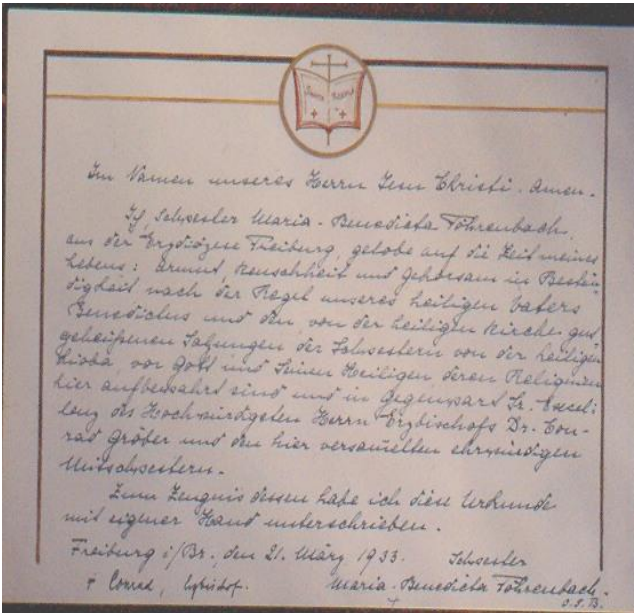 Im Namen unseres Herrn Jesu Christi. Amen.
Ich, Schwester Maria-Benedicta Föhrenbach,
aus der Erzdiözese Freiburg, gelobe auf die Zeit meines
Lebens: Armut, Keuschheit und Gehorsam in Bestän-
digkeit nach der Regel unseres heiligen Vaters
Benedictus und den, von der heiligen Kirche gut-
geheißenen Satzungen der Schwestern von der heiligen
Lioba, vor Gott und Seinen Heiligen, deren Reliquien
hier aufbewahrt sind und in Gegenwart Sr. Excel-
lenz des Hochwürdigsten Herrn Erzbischofs Dr. Con-
rad Gröber und den hier versammelten ehrwürdigen
Mitschwestern.
Zum Zeugnis dessen habe ich diese Urkunde
mit eigener Hand unterschrieben.
Freiburg i/Br., den 21. März 1933. Schwester
+ Conrad, Erzbischof. Maria-Benedicta Föhrenbach.
O.S.B.